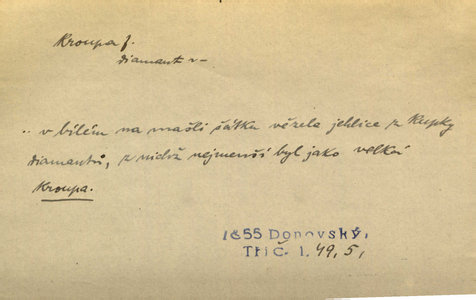 Kroupa f.
diamant ~
.. v bílém na mašli šátku vězela jehlice z kupky
diamantů, z nichž nejmenší byl jako velká
kroupa.
1655 Donovský,
Tři č. I. 49, 5,